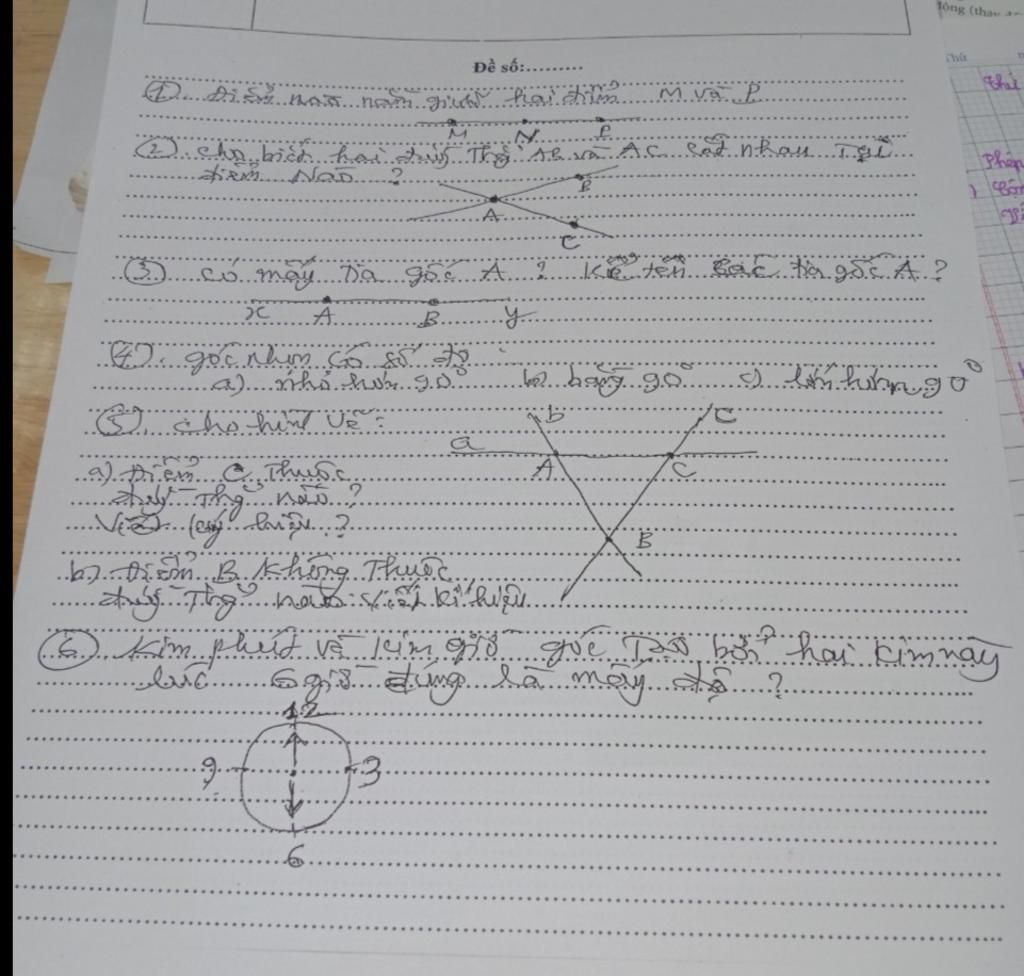 động (thay
Thứ
Thứ
Phép
Đề số:.........
① Điểm nào nằm giữa hai điểm M và P
M N P
② cho biết hai đườg Thẳg AB và AC cắt nhau Tại
điểm Nào ?
B
A
C
③ có mấy Tia gốc A ? Kể tên các tia gốc A ?
x A B y
④. góc nhọn có số đo :
a) nhỏ hơn 90° b) bằng 90° c) lớn hơn 90°
⑤. cho hình vẽ :
b c
a
A C
B
a) Điểm C Thuộc
đườg Thẳg nào ?
Viết ký hiệu ?
b.) Điểm B Không Thuộc
đườg Thẳg nào viết kí hiệu
⑥ Kim phút và kim giờ góc Tạo bởi hai kim này
lúc 6 giờ đúng là mấy độ ?
12
9 3
6